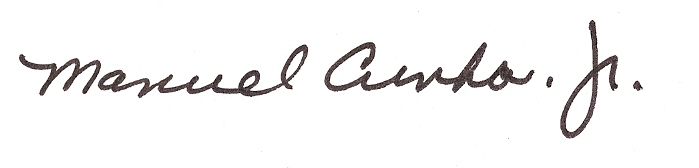 Manuel Cunha. Jr.